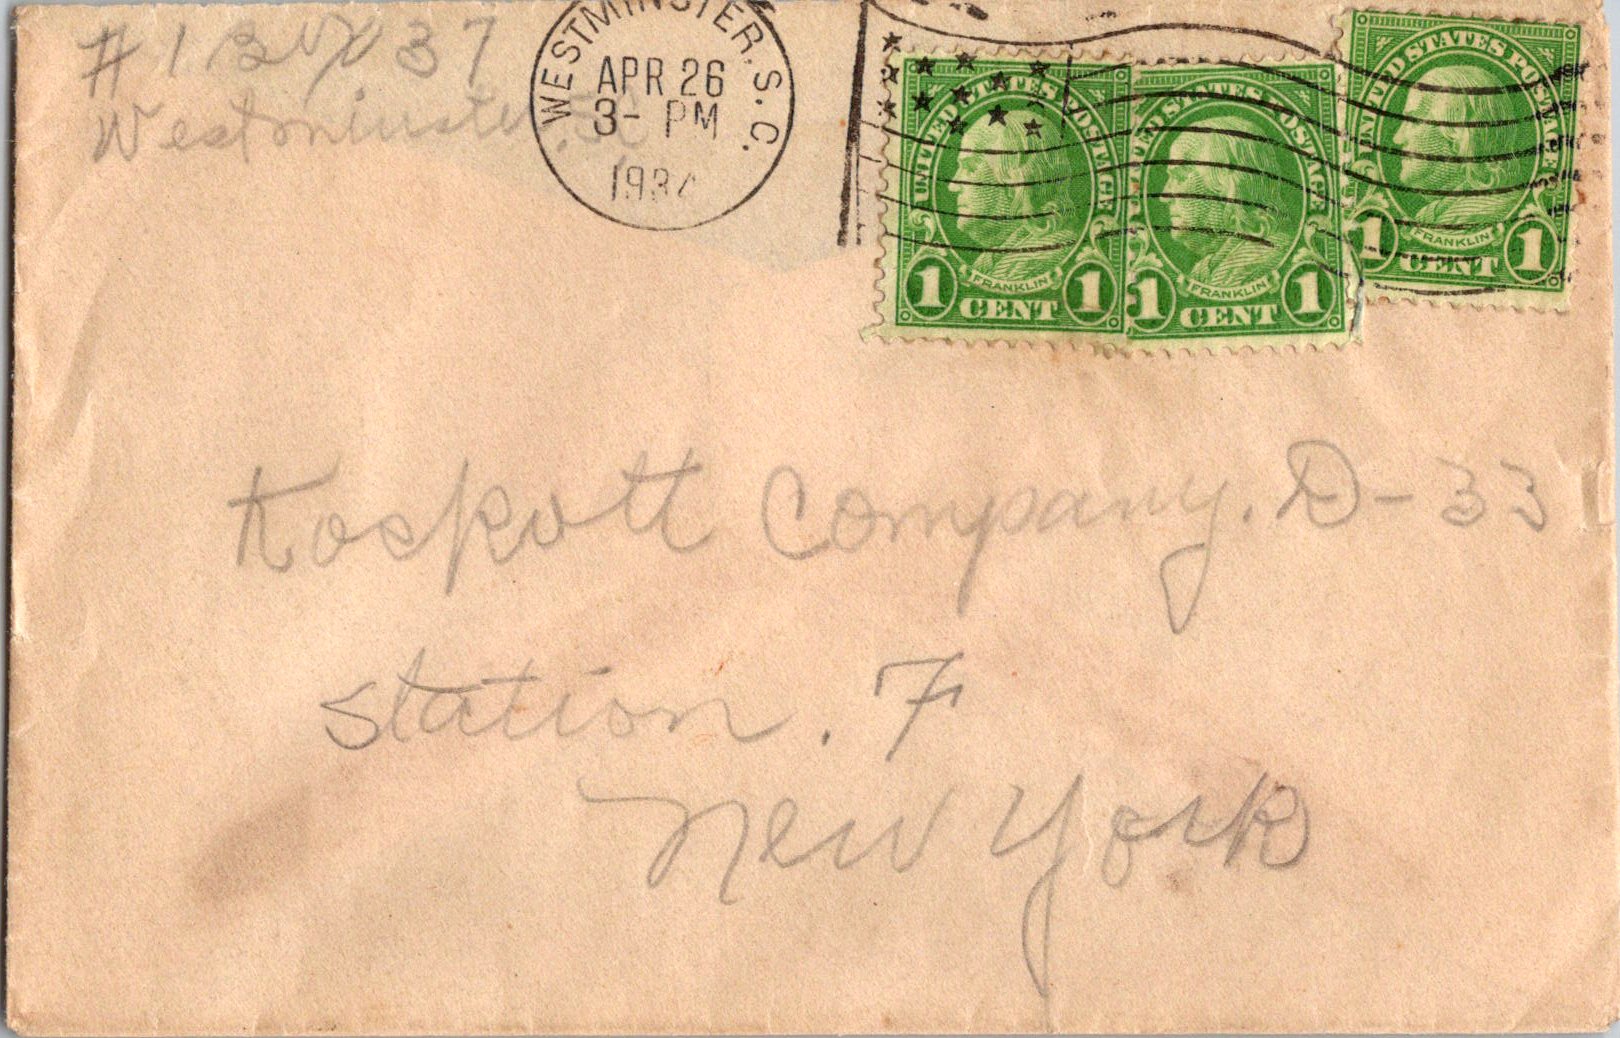 # 1 Box 37
Westminster, S.C.
WESTMINSTER, S.C.
APR 26
3- PM
1934
UNITED STATES POSTAGE
FRANKLIN
1 CENT 1
UNITED STATES POSTAGE
FRANKLIN
1 CENT 1
UNITED STATES POSTAGE
FRANKLIN
1 CENT 1
Koskott Company, D-33
Station. F
New York